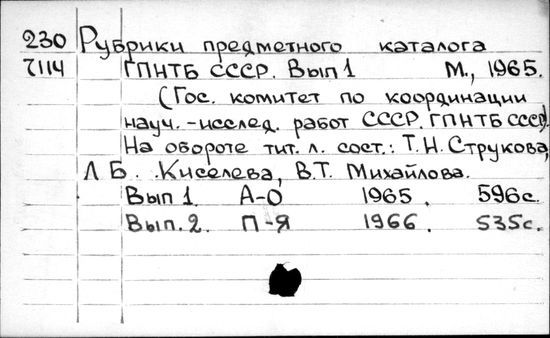 230 Рубрики предметного каталога
7114 ГПНТБ СССР. Вып 1 М., 1965.
(Гос. комитет по координации
науч.-исслед. работ СССР. ГПНТБ СССР).
На обороте тит. л. сост.: Т.Н. Струкова,
Л Б. Киселева, В.Т. Михайлова.
Вып 1. А-О 1965. 596с.
Вып. 2. П-Я 1966. 535с.